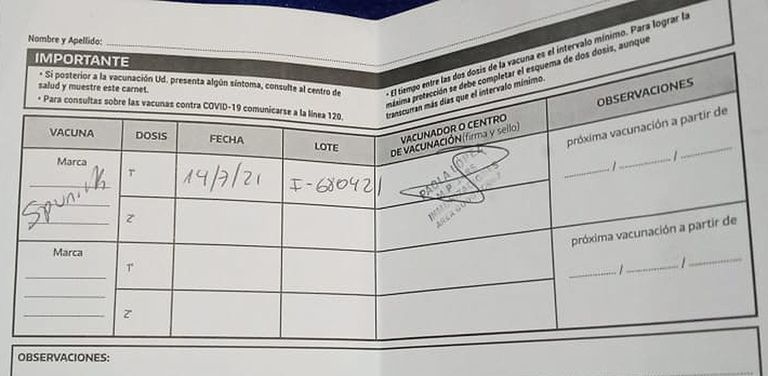 Nombre y Apellido:
IMPORTANTE
• Si posterior a la vacunación Ud. presenta algún síntoma, consulte al centro de
salud y muestre este carnet.
• Para consultas sobre las vacunas contra COVID-19 comunicarse a la línea 120.
• El tiempo entre las dos dosis de la vacuna es el intervalo mínimo. Para lograr la
máxima protección se debe completar el esquema de dos dosis, aunque
transcurran más días que el intervalo mínimo.
VACUNA DOSIS FECHA LOTE VACUNADOR O CENTRO
DE VACUNACIÓN (firma y sello)
OBSERVACIONES
Marca
1° 14/7/21 I-680421
PAOLA LÓPEZ
M.P.
próxima vacunación a partir de
/ /
2°
Marca
1°
próxima vacunación a partir de
/ /
2°
OBSERVACIONES: